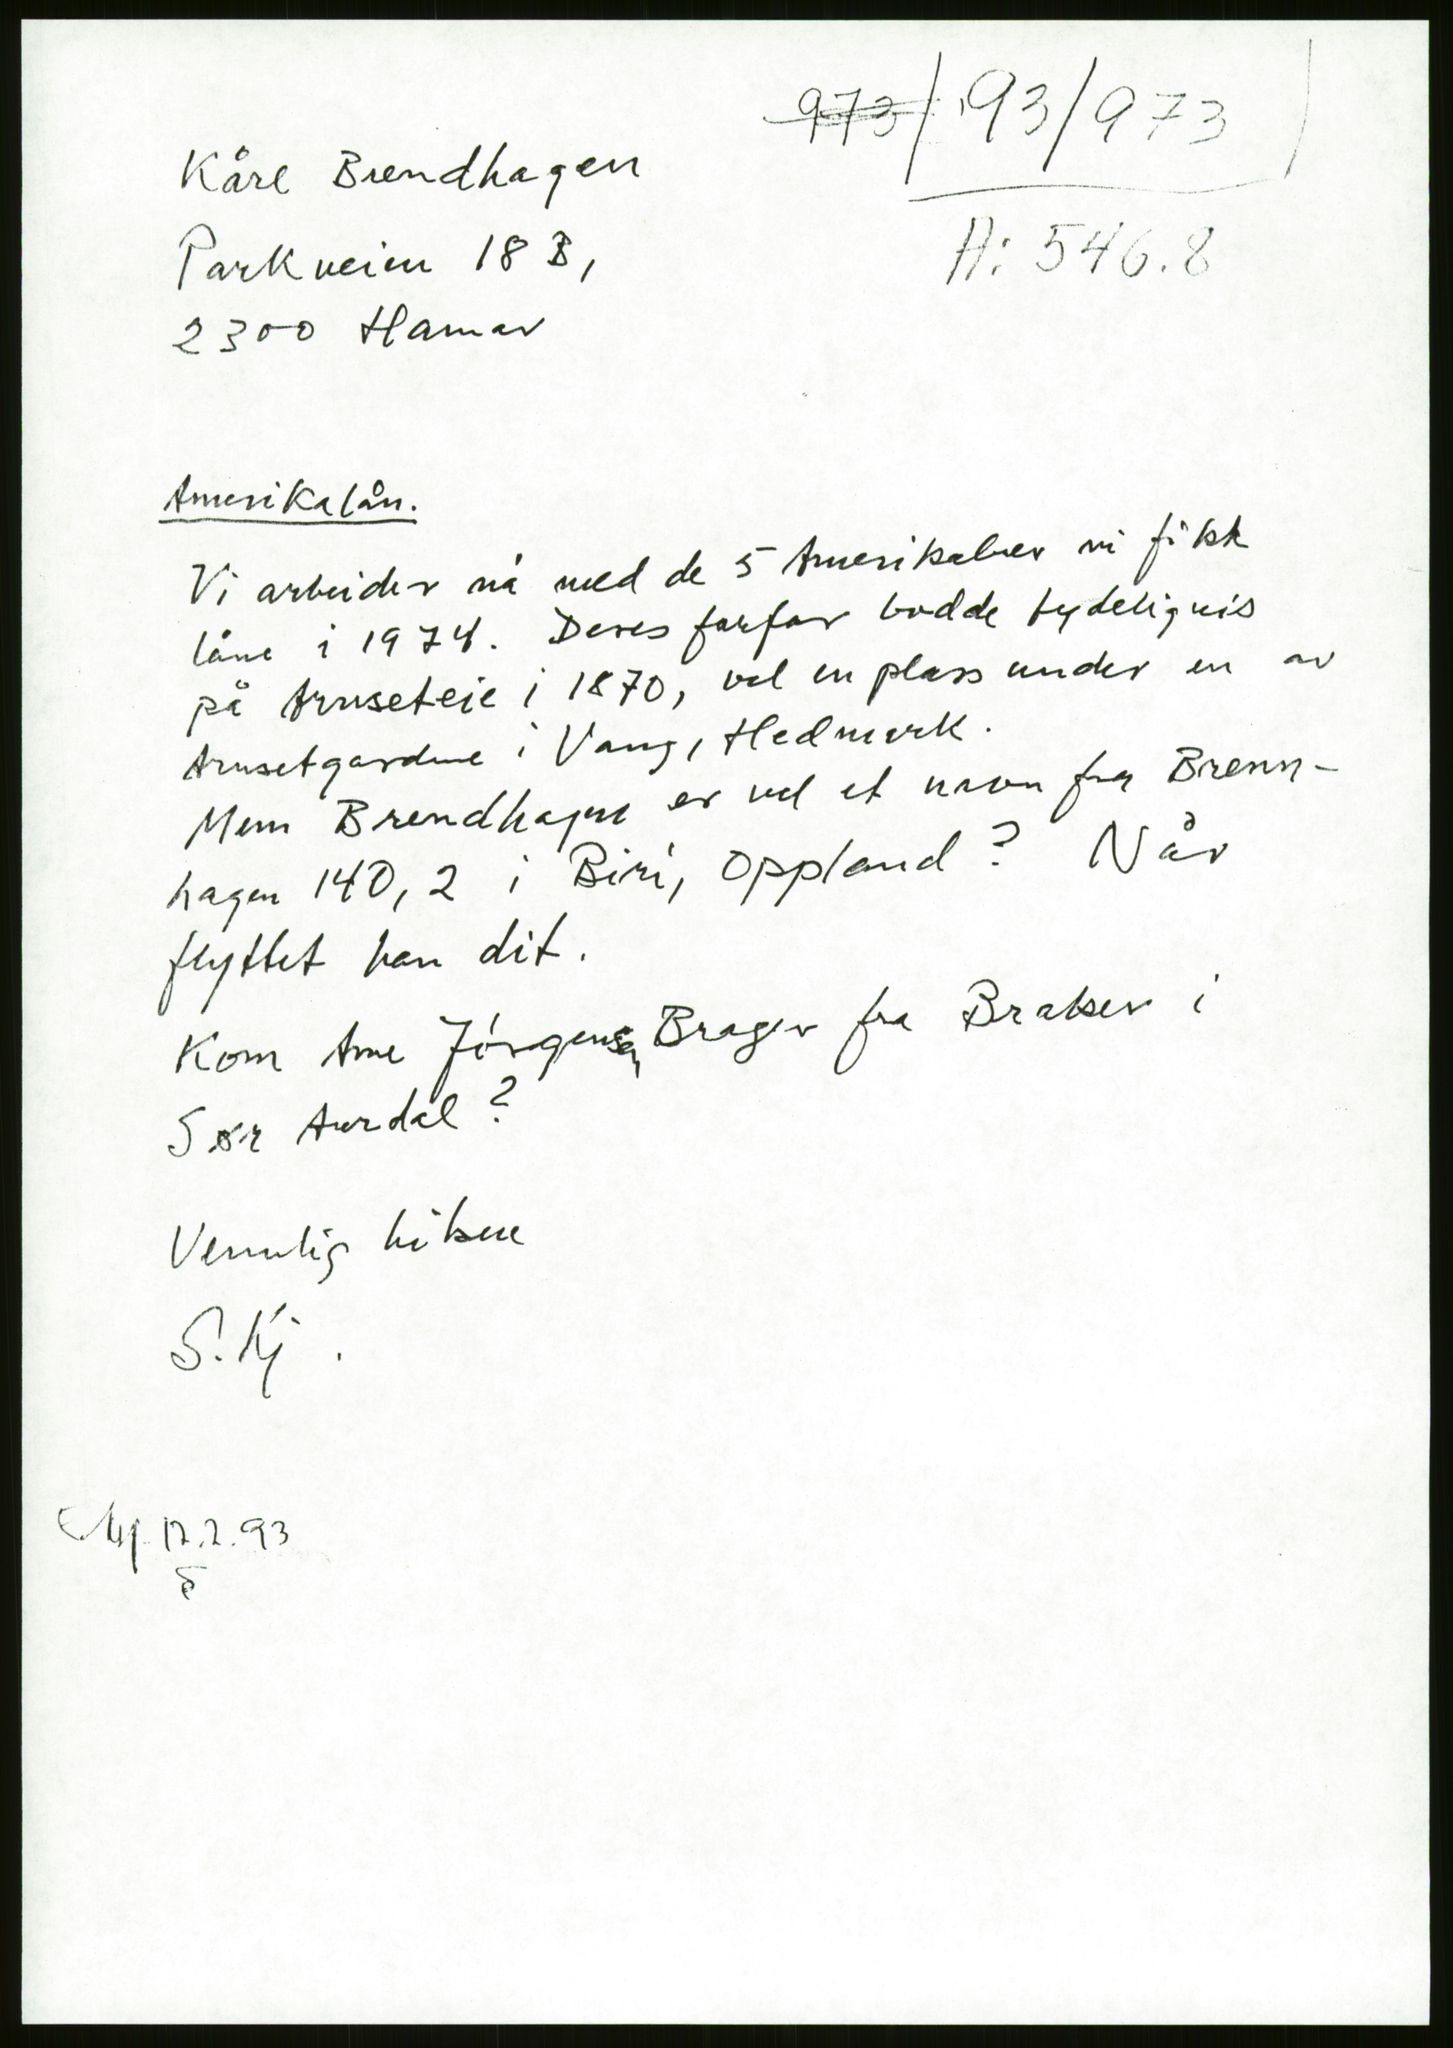 973/ 93/973
Kåre Brendhagen
A: 546.8
Parkveien 18 B,
2300 Hamar
Amerikalån.
Vi arbeider nå med de 5 Amerikabrev vi fikk
låne i 1974. Deres farfar bodde tydeligvis
på Arnseteie i 1870, vel en plass under en av
Arnsetgardene i Vang, Hedmark.
Men Brendhagen er vel et navn fra Brenn-
hagen 140, 2 i Biri, Oppland? Når
flyttet han dit.
Kom Arne Jørgensen Brager fra Braker i
Sør Aurdal?
Vennlig hilsen
S. Kj.
17.2.93